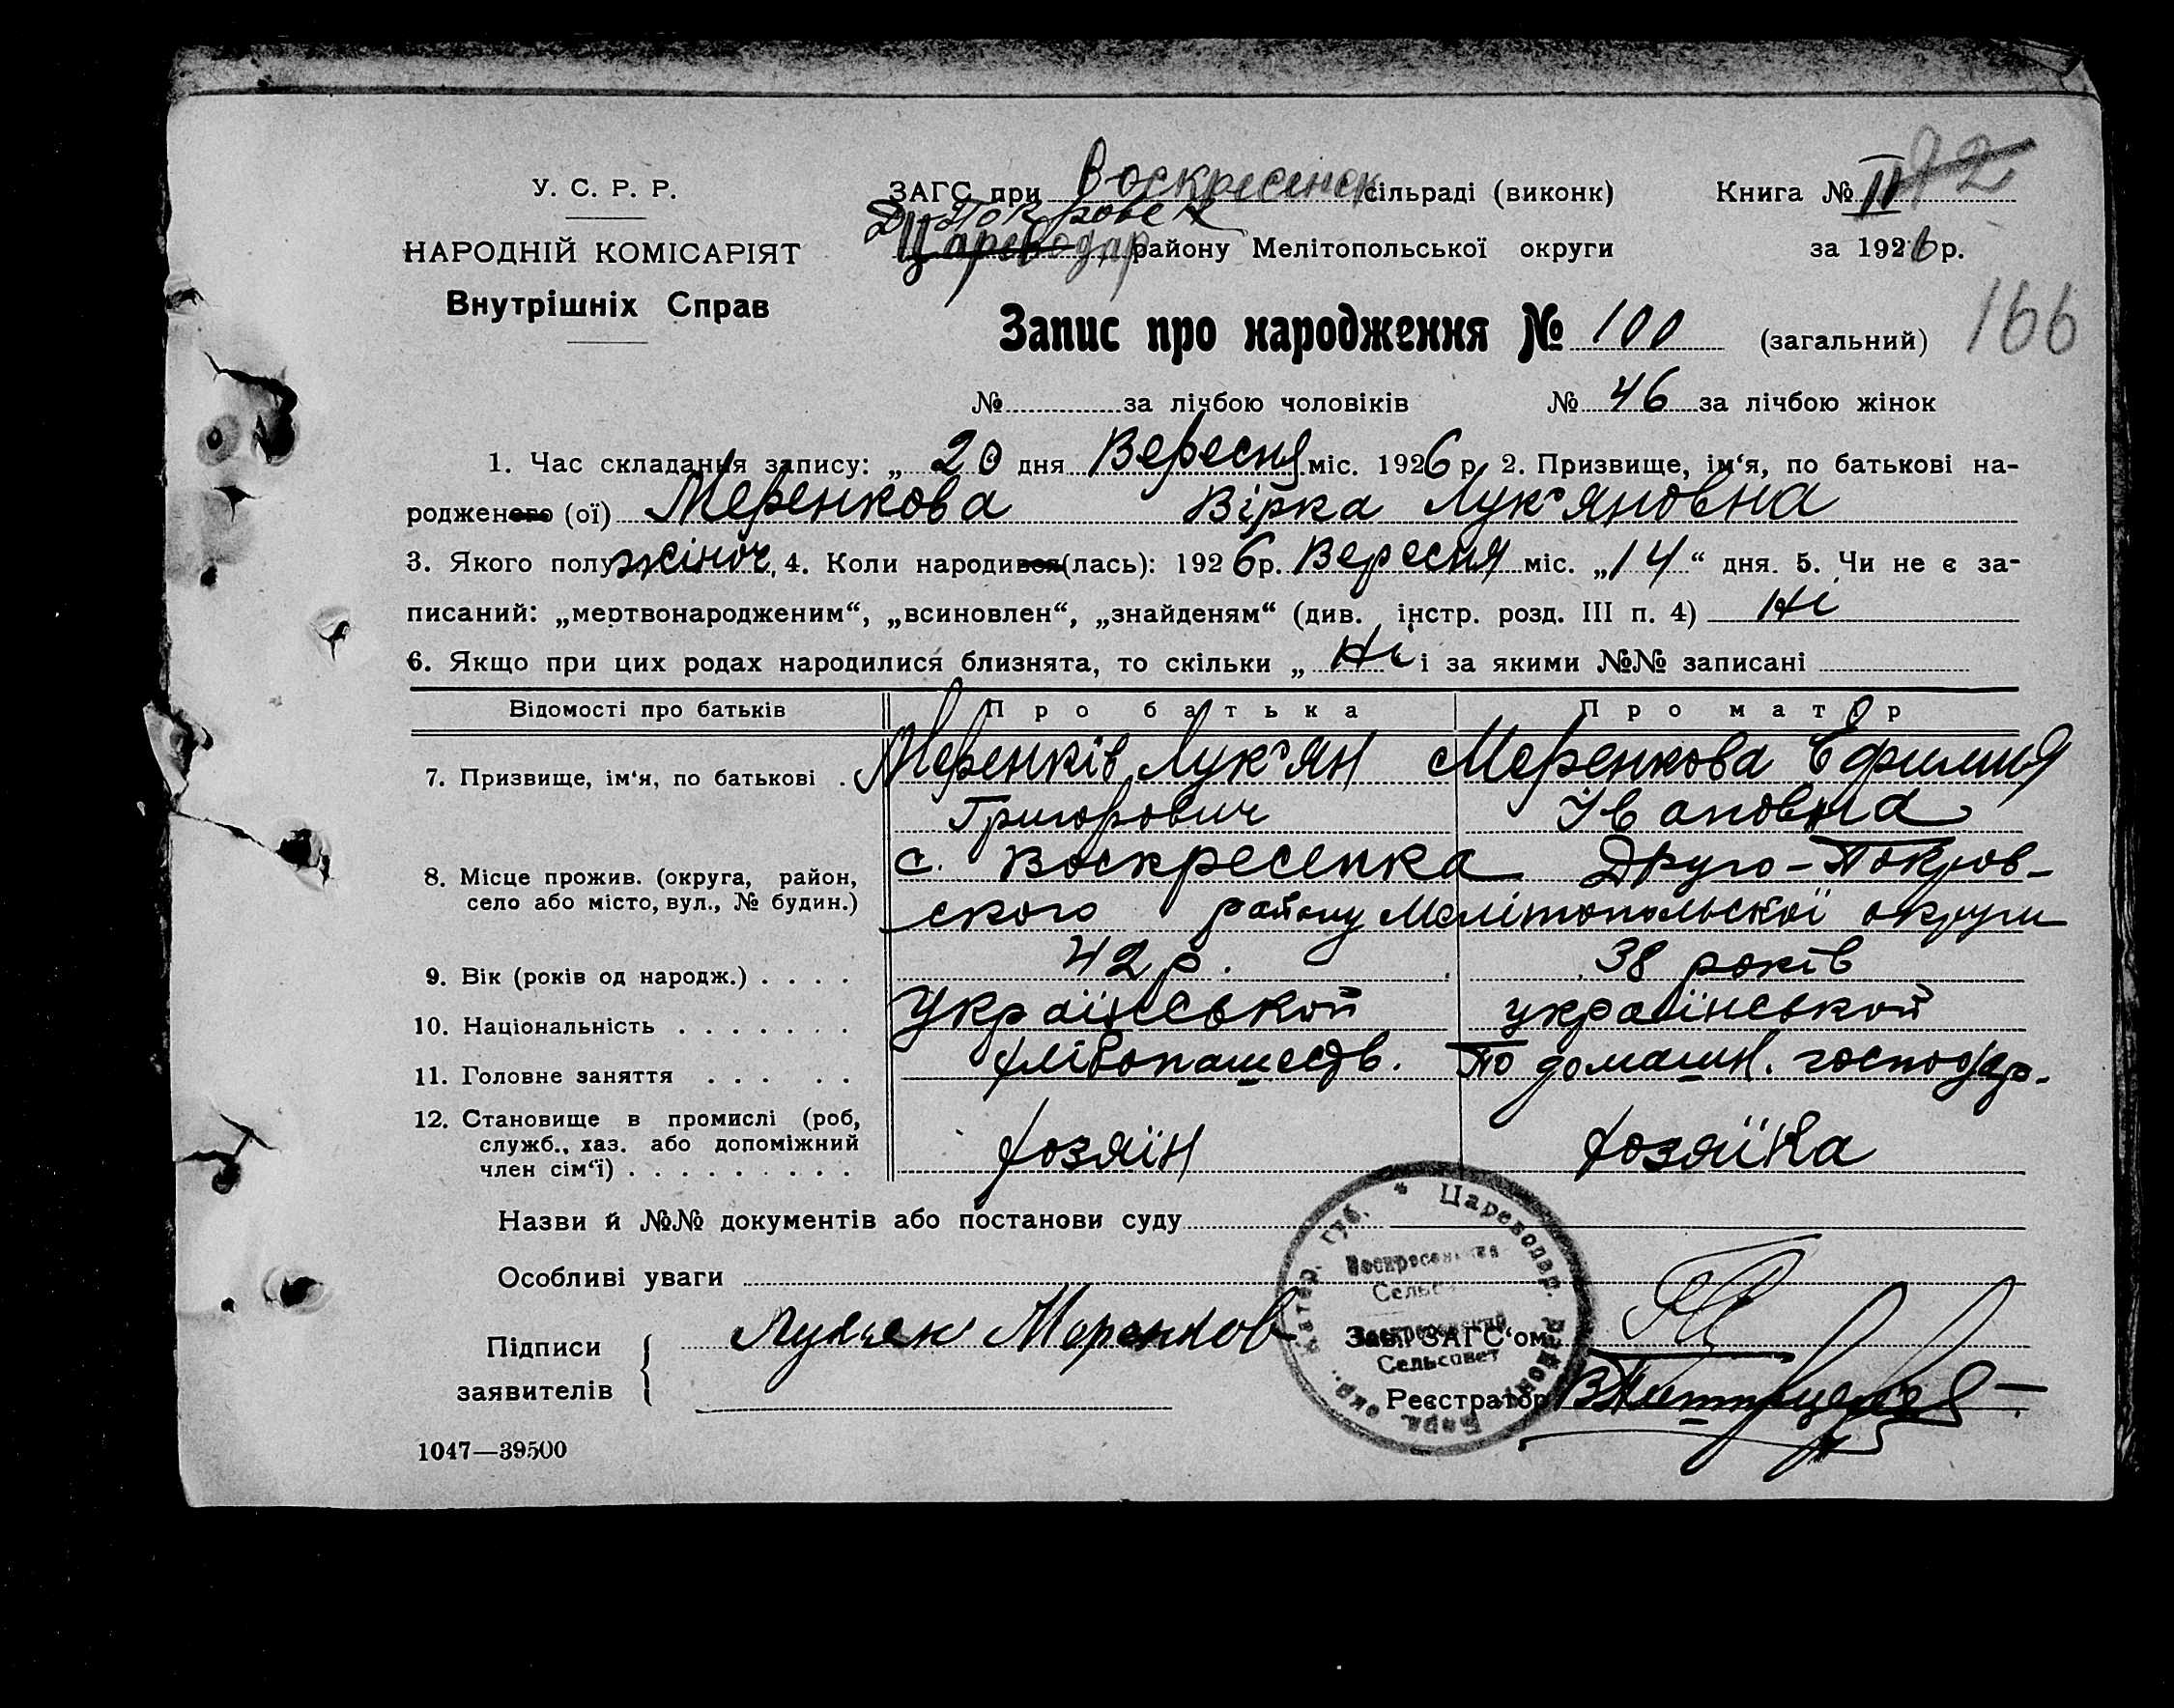 У. С. Р. Р.
НАРОДНІЙ КОМІСАРІЯТ
Внутрішніх Справ
ЗАГС при Воскресенск сільраді (виконк)
Д Покровск
Цареводар району Мелітопольської округи
Книга № II 92
за 1926 р.
166
Запис про народження № 100 (загальний)
№ за лічбою чоловіків № 46 за лічбою жінок
1. Час складання запису: „ 20 дня Вересня міс. 1926 р. 2. Призвище, ім‘я, по батькові на-
родженого (ої) Меренкова Вірка Лук'яновна
3. Якого полу жіноч. 4. Коли народився (лась): 1926 р. Вересня міс. „14“ дня. 5. Чи не є за-
писаний: „мертвонародженим“, „всиновлен“, „знайденям“ (див. інстр. розд. III п. 4) Ні
6. Якщо при цих родах народилися близнята, то скільки „ Ні і за якими №№ записані
Відомості про батьків Про батька Про матір
7. Призвище, ім‘я, по батькові . Меренків Лук'ян Меренкова Ефимия
Григорович Івановна
8. Місце прожив. (округа, район, с. Воскресенка Друго-Покров-
село або місто, вул., № будин.) ского району Мелітопольскоі округи
9. Вік (років од народж.) . . . . 42 р. 38 років
10. Національність . . . . . . . Українськой українськой
11. Головне заняття . . . . . хлібопашеств. По домашн. господар.
12. Становище в промислі (роб,
служб., хаз. або допоміжний
член сім‘ї) . . . . . . . . . хозяїн хозяїка
Назви й №№ документів або постанови суду
Особливі уваги
Підписи
заявителів
Лукьян Меренков
Зав. ЗАГС‘ом
Реєстратор
Цареводар.
Катер. Губ.
Берд. окр.
Сельсовет
1047—39500